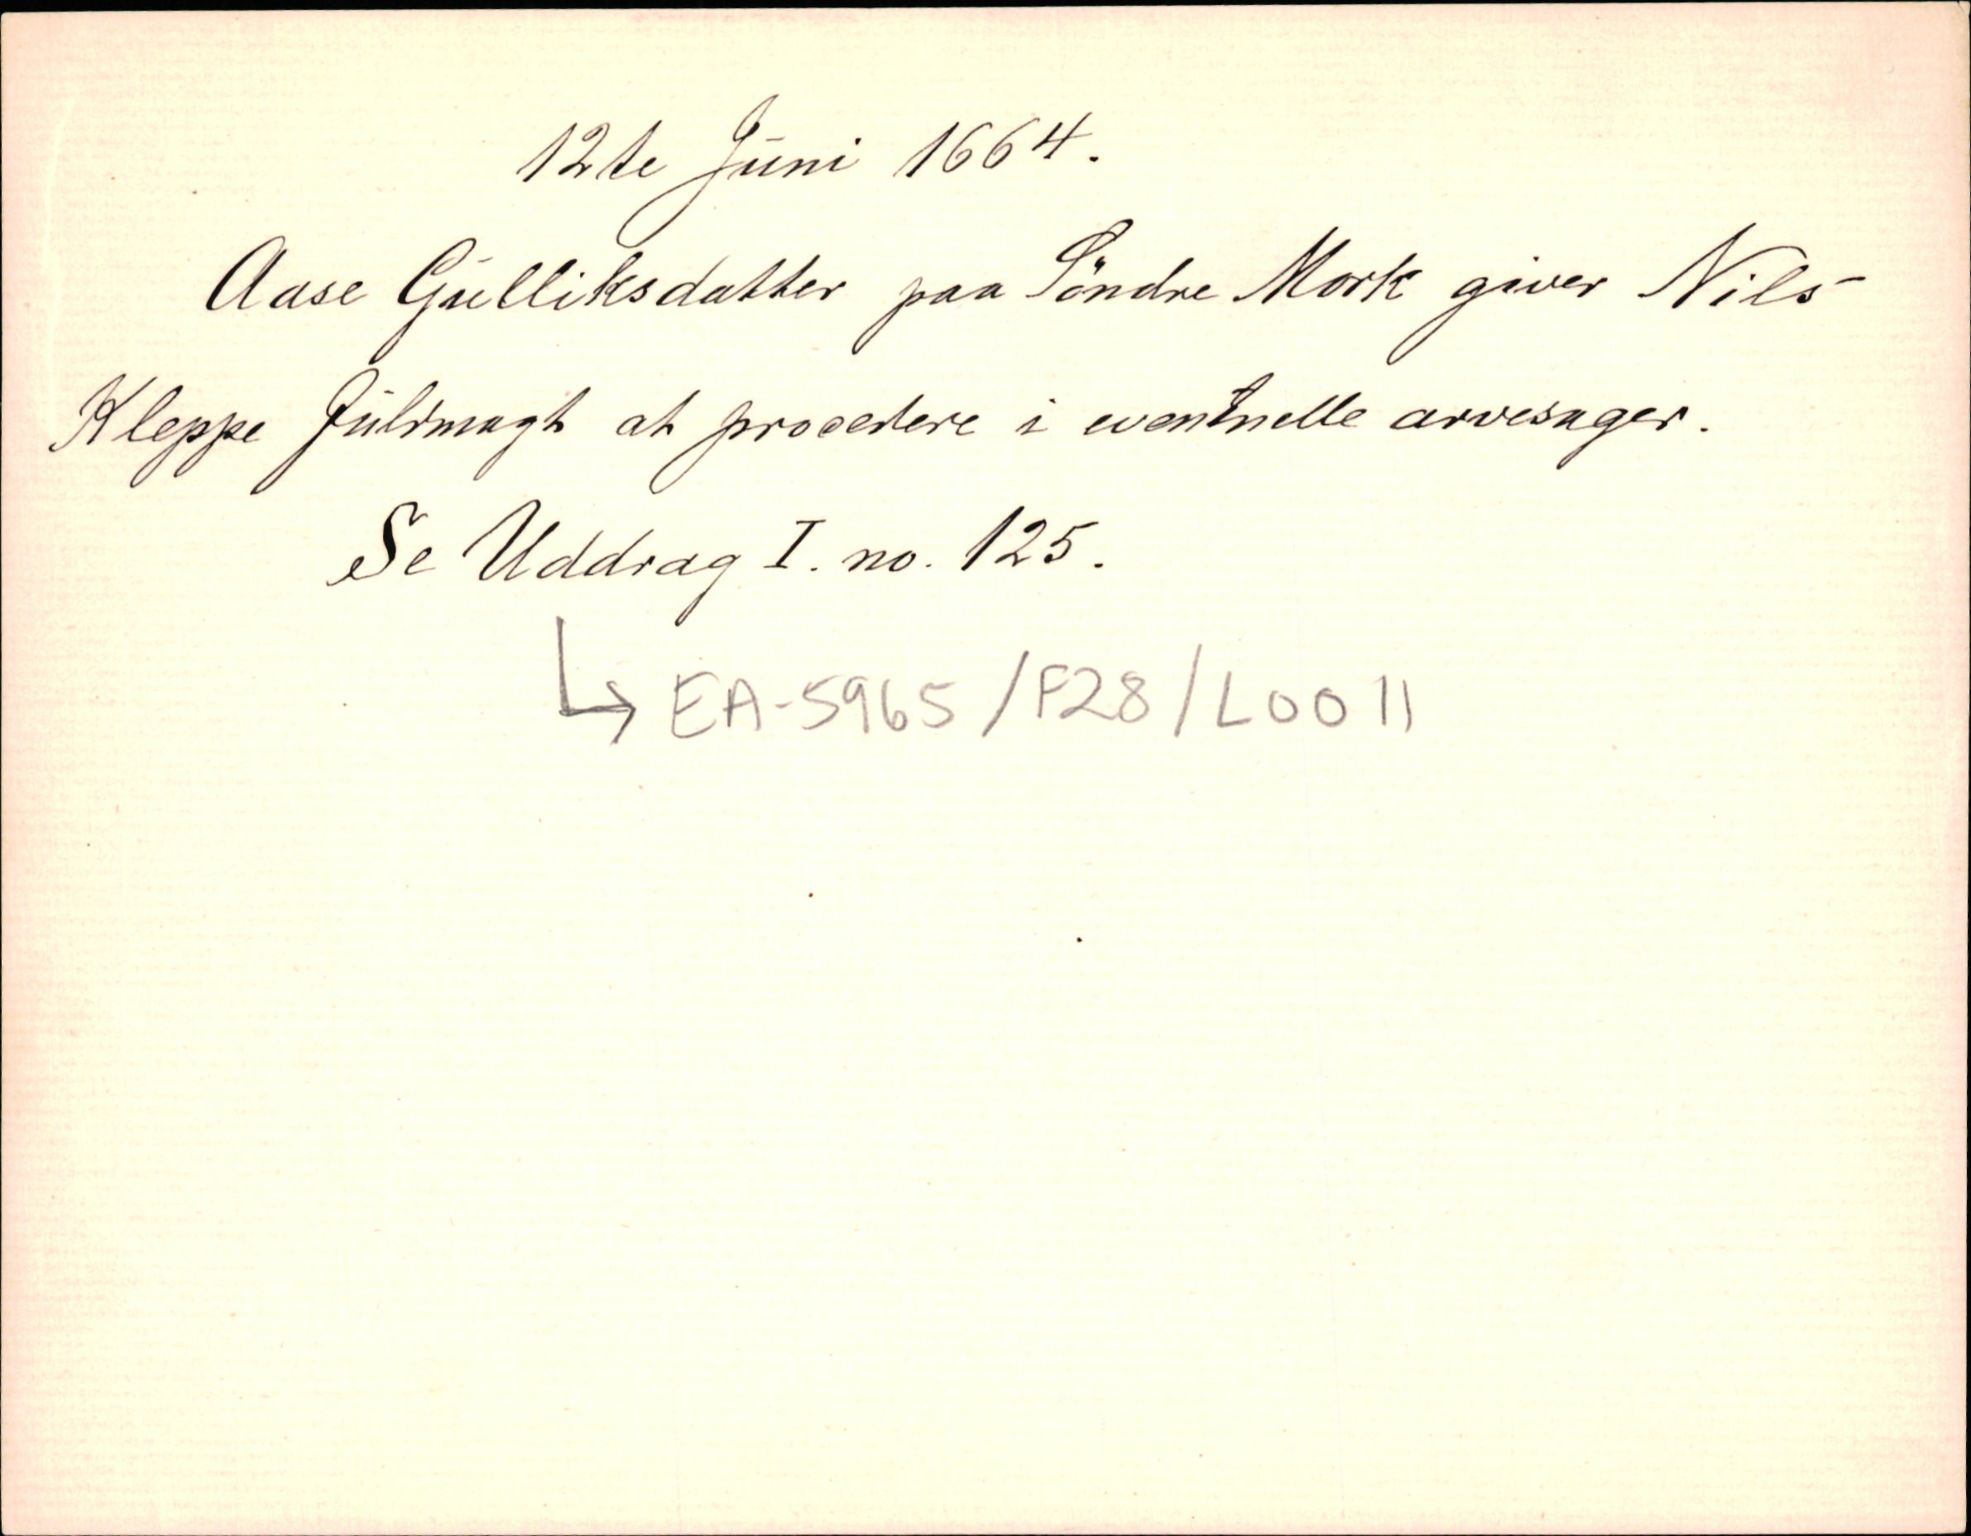 12te Juni 1664.
Aase Gulliksdatter paa Söndre Mork giver Nils
Kleppe fuldmagt at procedere i eventuelle arvesager.
Se Uddrag I. no. 125.
↳ EA-5965/F28/L0011